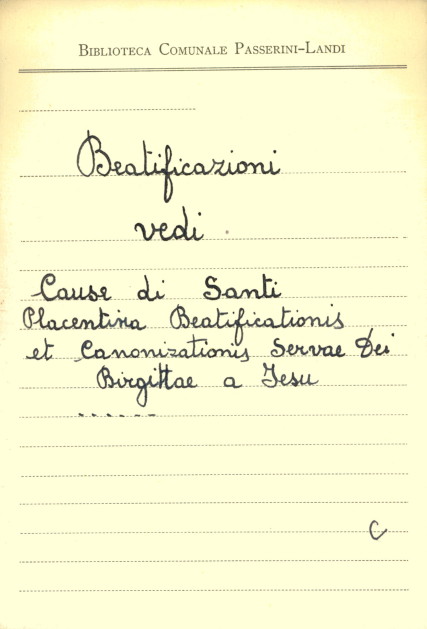 Biblioteca Comunale Passerini-Landi
Beatificazioni
vedi
Cause di Santi
Placentina Beatificationis
et Canonizationis Servae Dei
Birgittae a Jesu
......
C